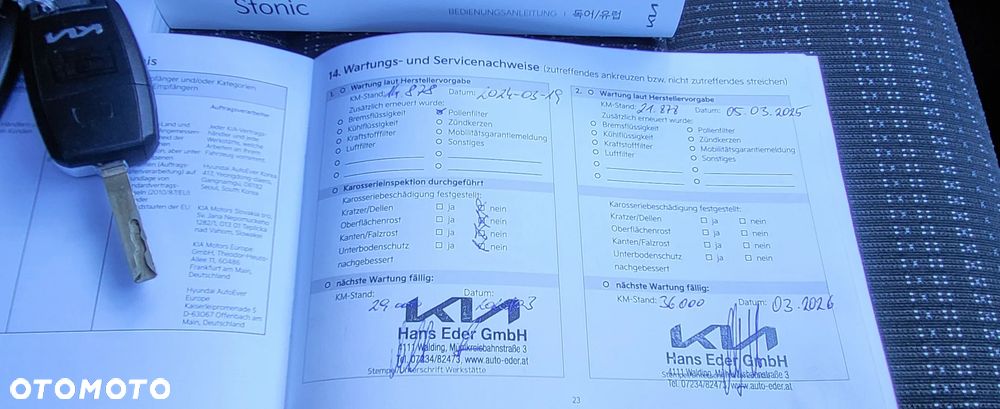 Stonic
BEDIENUNGSANLEITUNG | 독어/유럽
KIA
14. Wartungs- und Servicenachweise (zutreffendes ankreuzen bzw. nicht zutreffendes streichen)
1. Wartung laut Herstellervorgabe
KM-Stand: 14.878 Datum: 2024-03-19
Zusätzlich erneuert wurde:
Bremsflüssigkeit Pollenfilter
Kühlflüssigkeit Zündkerzen
Kraftstofffilter Mobilitätsgarantiemeldung
Luftfilter Sonstiges
Karosserieinspektion durchgeführt
Karosseriebeschädigung festgestellt:
Kratzer/Dellen ja nein
Oberflächenrost ja nein
Kanten/Falzrost ja nein
Unterbodenschutz ja nein
nachgebessert
nächste Wartung fällig:
KM-Stand: Datum:
KIA
Hans Eder GmbH
4111 Walding, Mursbergstraße 3
Tel. 07234/82473, www.auto-eder.at
Stempel/Unterschrift Werkstätte
2. Wartung laut Herstellervorgabe
KM-Stand: 21.878 Datum: 05.03.2025
Zusätzlich erneuert wurde:
Bremsflüssigkeit Pollenfilter
Kühlflüssigkeit Zündkerzen
Kraftstofffilter Mobilitätsgarantiemeldung
Luftfilter Sonstiges
Karosseriebeschädigung festgestellt:
Kratzer/Dellen ja nein
Oberflächenrost ja nein
Kanten/Falzrost ja nein
Unterbodenschutz ja nein
nachgebessert
nächste Wartung fällig:
KM-Stand: 36000 Datum: 03.2026
KIA
Hans Eder GmbH
4111 Walding, 3
Tel. 07234/82473, www.auto-eder.at
23
Auftragsverarbeiter
Jeder KIA-Vertragshändler
Hyundai AutoEver Korea
417, Yeongdong-daero,
Gangnam-gu, 06182
Seoul, South Korea
KIA Motors Slovakia sro,
Sv. Jana Nepomuckeho
1282/1, 013 01 Teplicka
nad Vahom, Slowakei
KIA Motors Europe
GmbH, Theodor-Heuss-
Allee 11, 60486
Frankfurt am Main,
Deutschland
Hyundai AutoEver
Europe
Kaiserleipromenade 5
D-63067 Offenbach am
Main, Deutschland
OTOMOTO